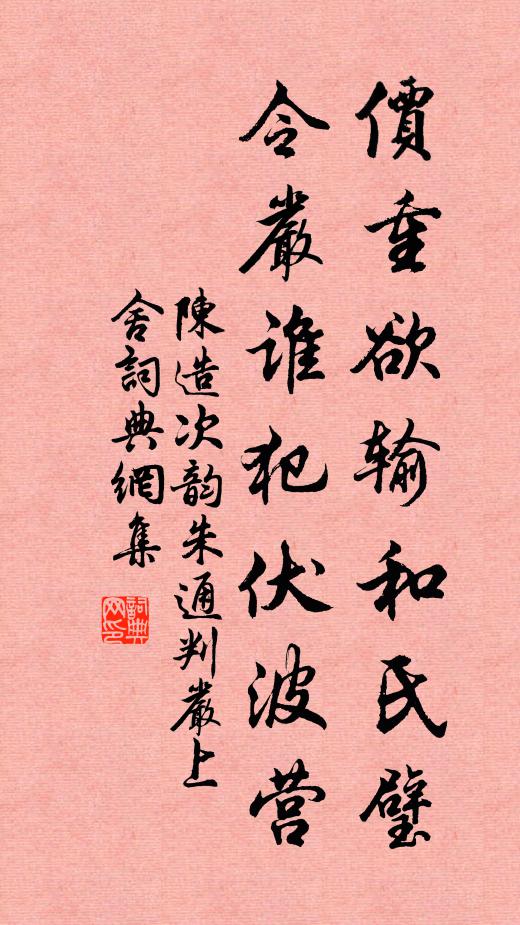 價重欲输和氏璧
令嚴誰犯伏波营
陳造次韵朱通判嚴上
舍詞典網集
詞典网印